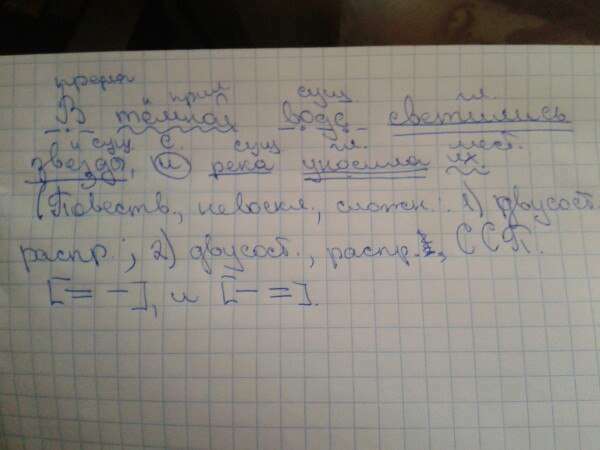 предл прил сущ гл.
В тёмной воде светились
сущ с. сущ гл. мест.
звёзды, и река уносила их.
(Повеств., невоскл., сложн.: 1) двусост.
распр.; 2) двусост., распр., ССП.
[= -], и [- =].